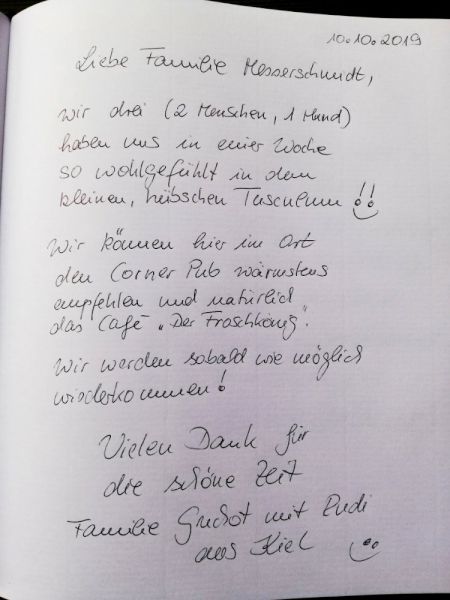 10.10.2019
Liebe Familie Messerschmidt,
wir drei (2 Menschen, 1 Hund)
haben uns in einer Woche
so wohlgefühlt in dem
kleinen, hübschen Tusculum !!
Wir können hier im Ort
den Corner Pub wärmstens
empfehlen und natürlich
das Café „Der Froschkönig".
Wir werden sobald wie möglich
wiederkommen!
Vielen Dank für
die schöne Zeit
Familie mit
aus Kiel